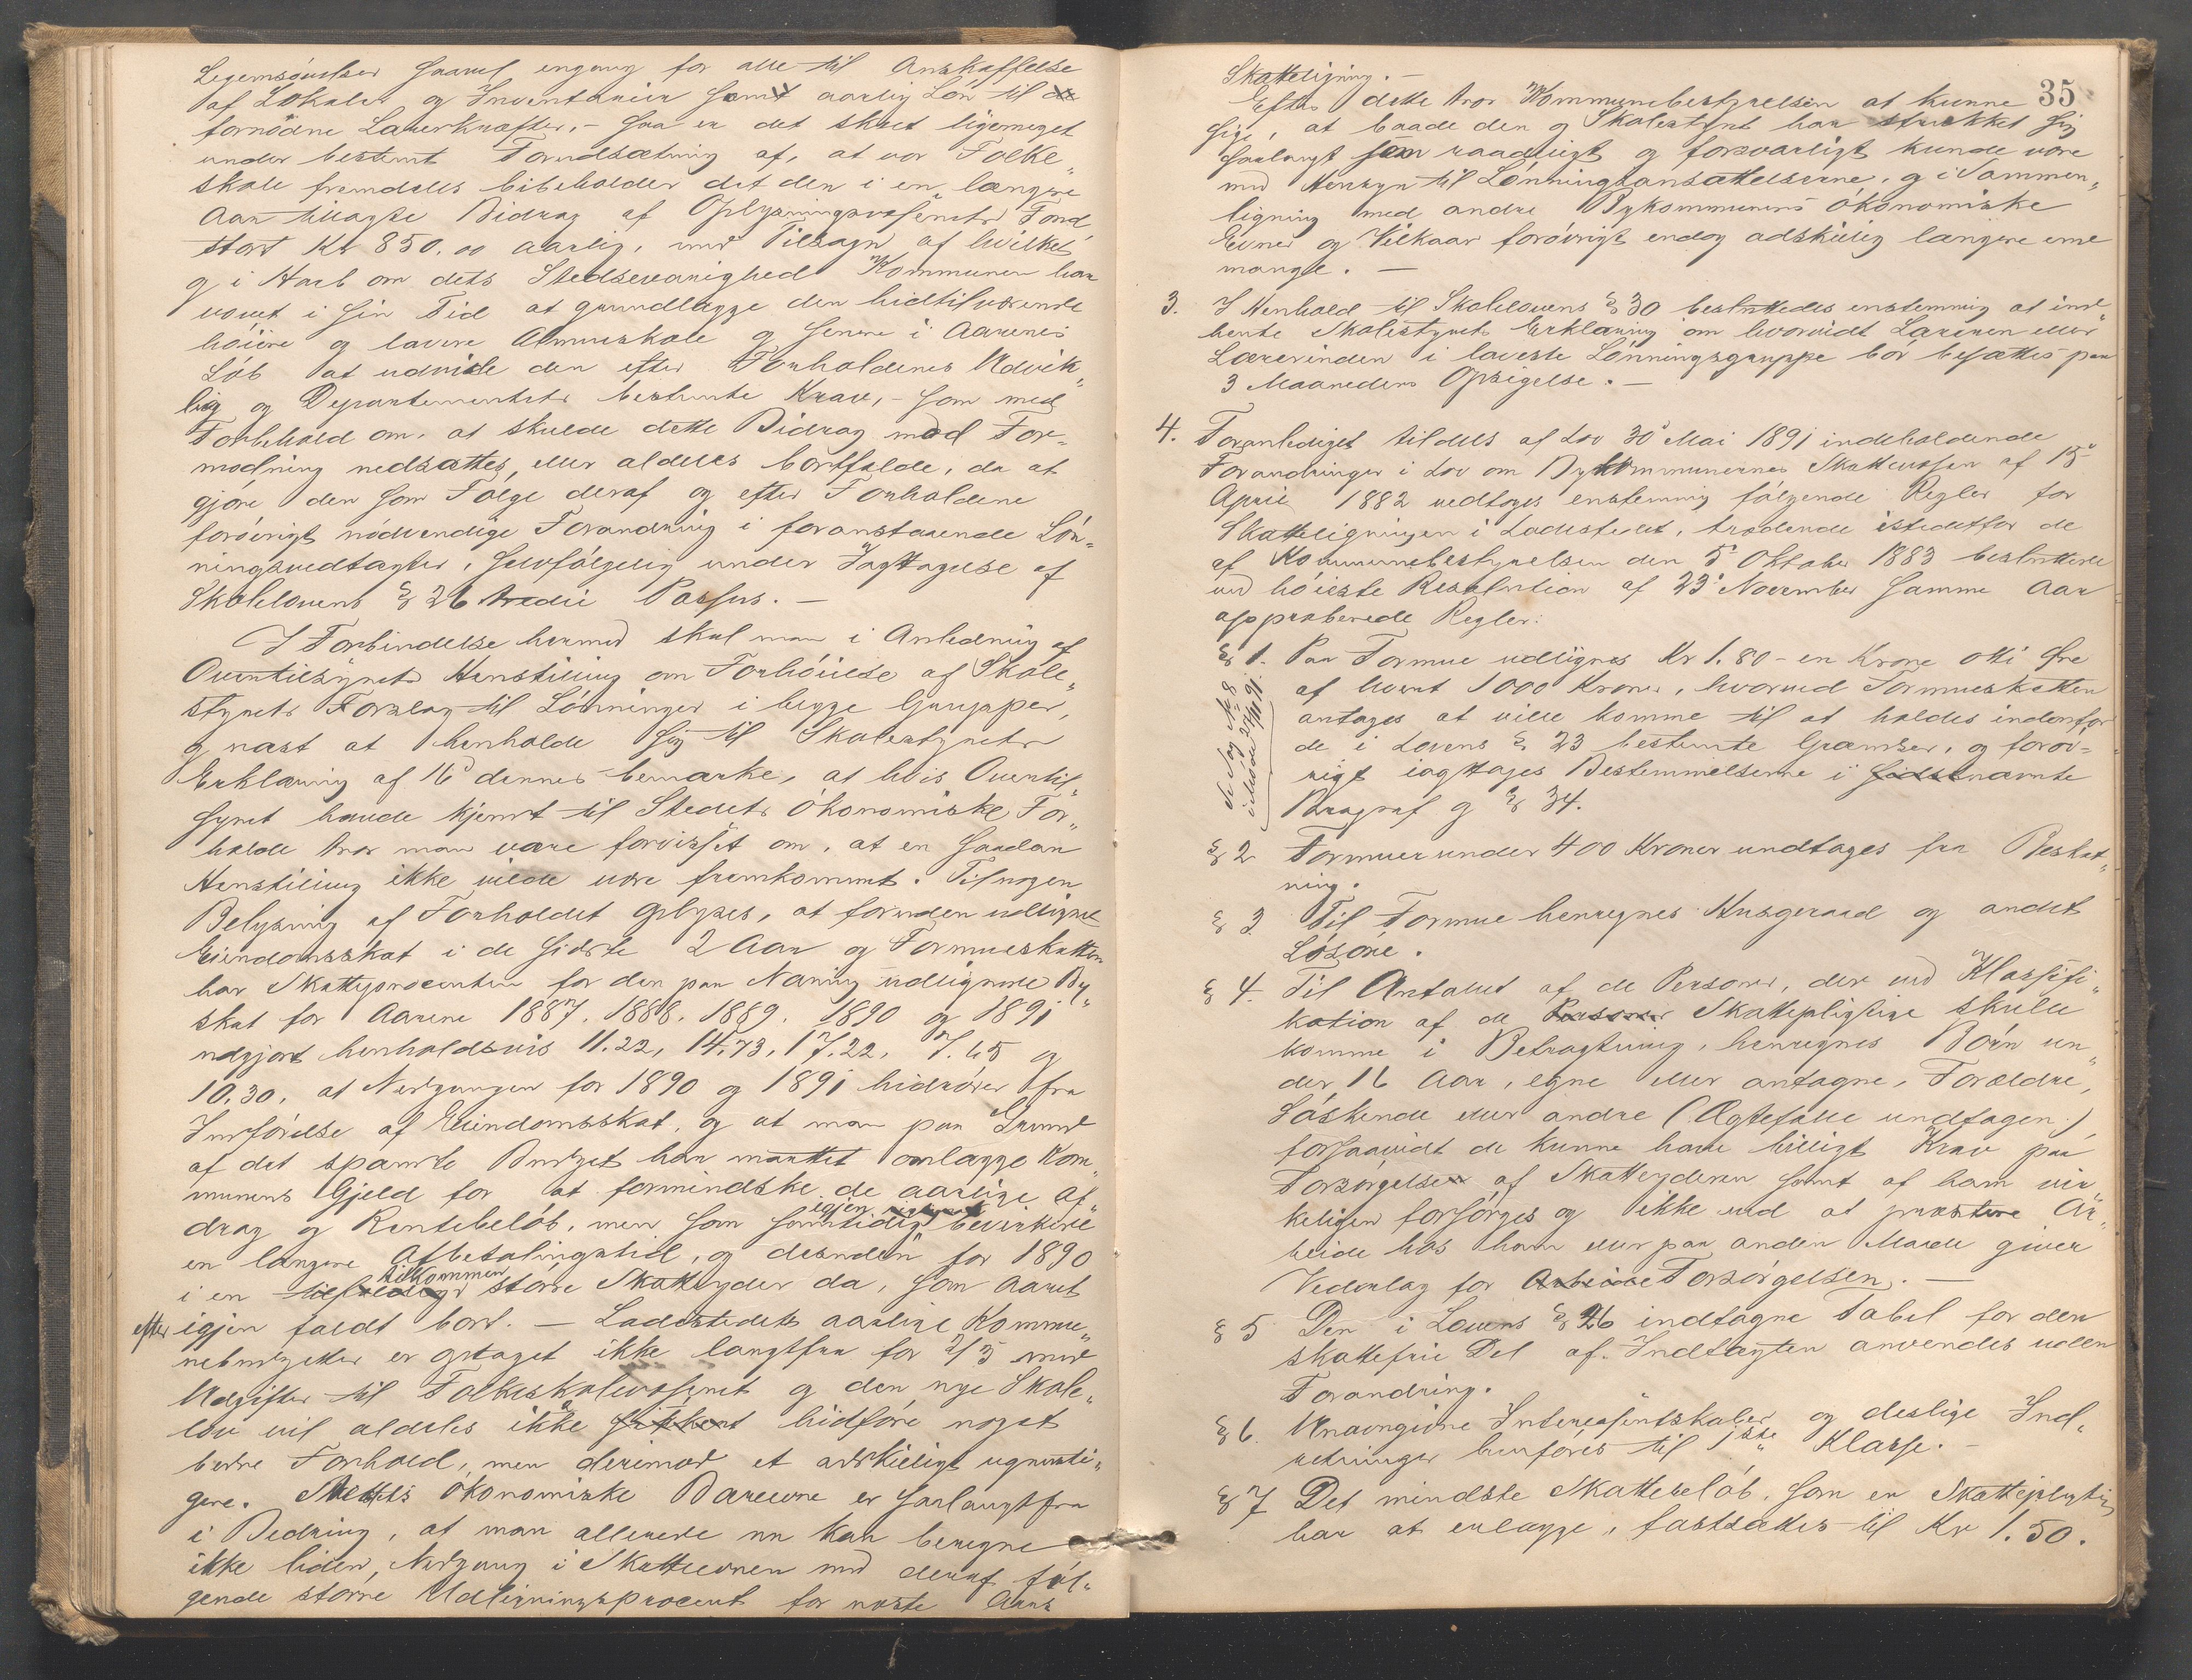 Legemsøvelser saavel engang for alle til Anskaffelse
af Lokaler og Inventarier samt aarlig Løn til de
fornødne Lærerkræfter, - saa er det skeet ligemeget
under bestemt Forudsætning af, at vor Folke„
skole fremdeles bibeholder det den i en længere
Aar tillagte Bidrag af Oplysningsvæsenets Fond
stort Kr 850.00 aarlig, med Tilsagn af hvilket
og i Haab om dets Stedsevarighed Kommunen har
vovet i sin Tid at grundlægge den hidtilværende
høiere og lavere Almueskole og senere i Aarenes
Løb at udvide den efter Forholdenes Udvik„
ling og Departementets bestemte Krav, - som med
Forbehold om, at skulde dette Bidrag mod For-
modning nedsættes, eller aldeles bortfalde, da at
gjøre den som Følge deraf og efter Forholdene
forøvrigt nødvendige Forandring i foranstaaende Løn„
ningsvedtægter, selvfølgelig under Iagttagelse af
Skolelovens § 26 tredie Passus. -
I Forbindelse hermed skal man i Anledning af
Overtilsynets Henstilling om Forhøielse af Skole„
styrets Forslag til Lønninger i begge Grupper,
og næst at henholde sig til Skolestyrets
Erklæring af 16 dennes bemærke, at hvis Overtil„
synet havde kjendt til Stedets økonomiske For„
holde tror man være forvisset om, at en saadan
Henstilling ikke vilde være fremkommet. Til nogen
Belysning af Forholdet oplyses, at foruden udlignet
Eiendomsskat i de sidste 2 Aar og Formueskatten
har Skatteprocenten for den paa Næring udlignede By„
skat for Aarene 1887, 1888, 1889, 1890 og 1891
udgjort henholdsvis 11.22, 14.73, 17.22, 7.45 og
10.30, at Nedgangen for 1890 og 1891 hidrører fra
Indførelse af Eiendomsskat, og at man paa Grund
af det spændte Budget har maattet omlægge Kom„
munens Gjeld for at formindske de aarlige Af„
drag og Rentebeløb, men som samtidig igjen bevirkede
en længere Afbetalingstid, og desuden for 1890
i en tilkommen større Skatteyder da, som Aaret
efter igjen faldt bort. - Ladestedets aarlige Kommu„
nebudgetter er optaget ikke langtfra for 2/3 med
Udgifter til Folkeskolevæsenet og den nye Skole„
lov vil aldeles ikke hidføre noget
bedre Forhold, men derimod et adskilligt ugunsti„
gere. Stedets økonomiske Bæreevne er saalangtfra
i Bedring, at man allerede nu kan beregne
ikke liden Nedgang i Skatteevnen med deraf føl„
gende større Udligningsprocent for næste Aars
35
Skatteligning. -
Efter dette tror Kommunebestyrelsen at kunne
sige, at baade den og Skolestyret har strukket sig
saalangt som raadeligt og forsvarligt kunde være
med Hensyn til Lønningsansættelserne, og i Sammen„
ligning med andre Bykommuners økonomiske
Evner og Vilkaar forøvrigt endog adskillig længere end
mange. -
3. I Henhold til Skolelovens § 30 besluttedes enstemmig at ind„
hente Skolestyrets Erklæring om hvorvidt Læreren eller
Lærerinden i laveste Lønningsgruppe bør besættes paa
3 Maaneders Opsigelse. -
4. Foranlediget tildels af Lov 30 Mai 1891 indeholdende
Forandringer i Lov om Bykommunernes Skattevæsen af 15
April 1882 vedtoges enstemmig følgende Regler for
Skatteligningen i Ladestedet, trædende istedetfor de
af Kommunebestyrelsen den 5 Oktober 1883 besluttede
ved høieste Resolution af 23 November samme Aar
approberede Regler:
Se Sag No 8
i Møde 24/11 91.
§ 1. Paa Formue udlignes Kr 1.80 - en Krone otti Øre
af hvert 1000 Kroner, hvorved Formueskatten
antages at ville komme til at holdes indenfor
de i Lovens § 23 bestemte Grændser, og forøv-
rigt iagttages Bestemmelserne i sidstnævnte
Pragraf og § 34.
§ 2 Formuer under 400 Kroner undtages fra Beskat„
ning.
§ 3 Til Formue henregnes Husgeraad og andet
Løsøre.
§ 4. Til Antallet af de Personer, der ved Klassifi„
kation af de Personer Skattepligtige skulle
komme i Betragtning, henregnes Børn un„
der 16 Aar, egne eller antagne, Forældre,
Søskende eller andre (Ægtefælle undtagen),
forsaavidt de kunne have billigt Krav paa
Forsørgelse af Skatteyderen samt af ham vir„
keligen forsørges og ikke ved at præstere Ar„
beide hos ham eller paa anden Maade giver
Vederlag for Arbeidet Forsørgelsen. -
§ 5 Den i Lovens § 26 indtagne Tabel for den
skattefrie Del af Indtægten anvendes uden
Forandring.
§ 6. Unavngivne Interessentskaber og deslige Ind„
retninger henføres til 1ste Klasse. -
§ 7 Det mindste Skattebeløb, som en Skattepligtig
har at erlægge, fastsættes til Kr 1.50.